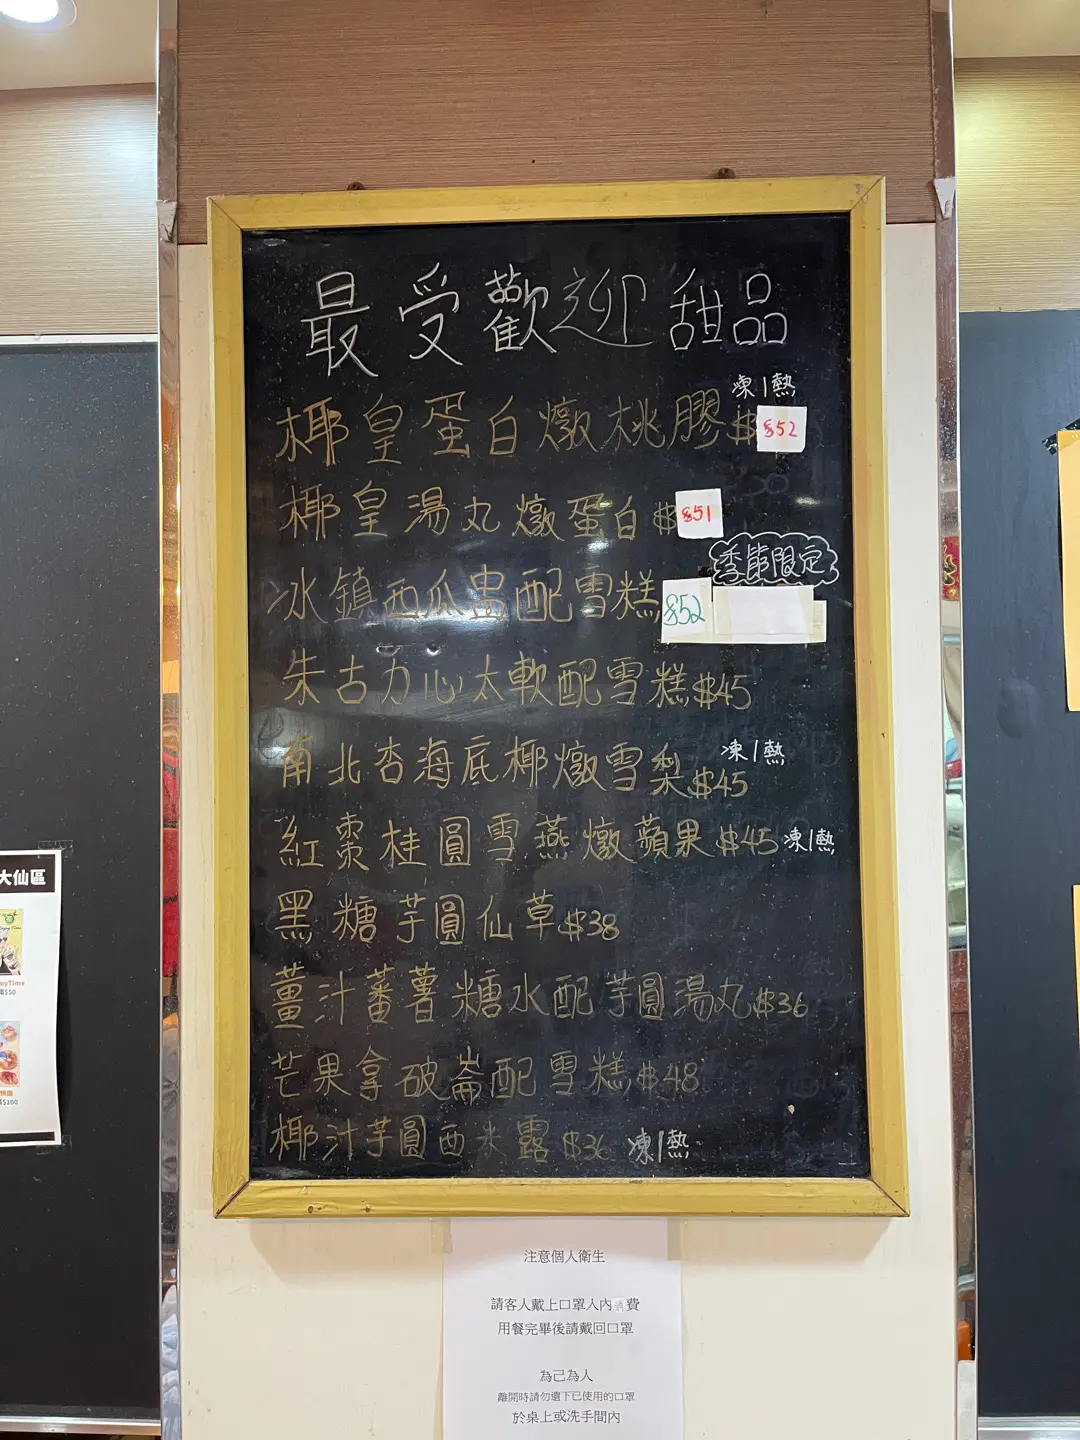 最受歡迎甜品
凍/熱
椰皇蛋白燉桃膠$ $52
椰皇湯丸燉蛋白$ $51
季節限定
冰鎮西瓜盅配雪糕 $52
朱古力心太軟配雪糕$45
凍/熱
南北杏海底椰燉雪梨$45
紅棗桂圓雪燕燉蘋果$45 凍/熱
黑糖芋圓仙草$38
薑汁蕃薯糖水配芋圓湯丸$36
芒果拿破崙配雪糕$48
椰汁芋圓西米露$36 凍/熱
注意個人衛生
請客人戴上口罩入內消費
用餐完畢後請戴回口罩
為己為人
離開時請勿遺下已使用的口罩
於桌上或洗手間內
大仙區
oyTime
$50
$100